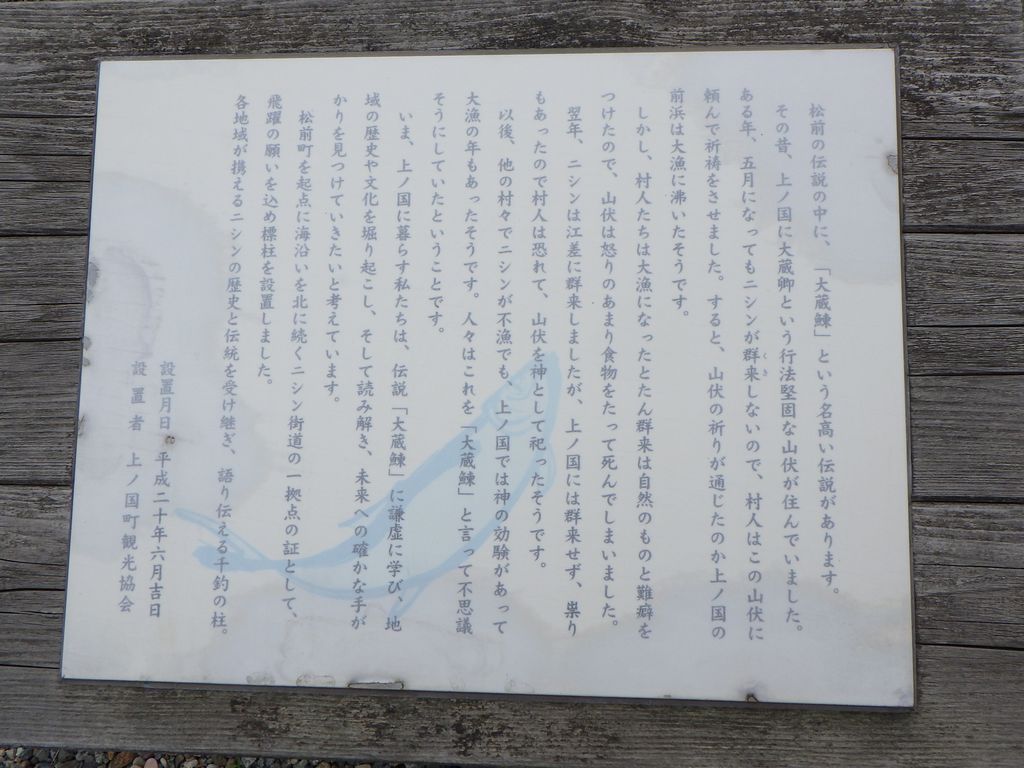 松前の伝説の中に、「大蔵鰊」という名高い伝説があります。
その昔、上ノ国に大蔵卿という行法堅固な山伏が住んでいました。
ある年、五月になってもニシンが群来しないので、村人はこの山伏に
頼んで祈祷をさせました。すると、山伏の祈りが通じたのか上ノ国の
前浜は大漁に沸いたそうです。
しかし、村人たちは大漁になったとたん群来は自然のものと難癖を
つけたので、山伏は怒りのあまり食物をたって死んでしまいました。
翌年、ニシンは江差に群来しましたが、上ノ国には群来せず、祟り
もあったので村人は恐れて、山伏を神として祀ったそうです。
以後、他の村々でニシンが不漁でも、上ノ国では神の効験があって
大漁の年もあったそうです。人々はこれを「大蔵鰊」と言って不思議
そうにしていたということです。
いま、上ノ国に暮らす私たちは、伝説「大蔵鰊」に謙虚に学び、地
域の歴史や文化を掘り起こし、そして読み解き、未来への確かな手が
かりを見つけていきたいと考えています。
松前町を起点に海沿いを北に続くニシン街道の一拠点の証として、
飛躍の願いを込め標柱を設置しました。
各地域が携えるニシンの歴史と伝統を受け継ぎ、語り伝える千釣の柱。
設置月日 平成二十年六月吉日
設置者 上ノ国町観光協会